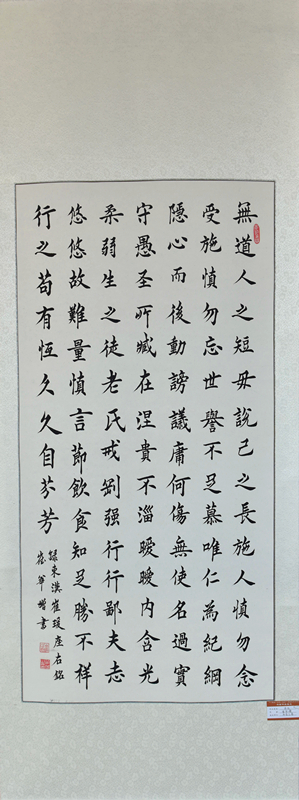 無道人之短毋說己之長施人慎勿念
受施慎勿忘世譽不足慕唯仁為紀綱
隱心而後動謗議庸何傷無使名過實
守愚圣所臧在涅貴不淄曖曖內含光
柔弱生之徒老氏戒剛强行行鄙夫志
悠悠故難量慎言節飲食知足勝不祥
行之苟有恆久久自芬芳
録東漢崔瑗座右銘
增書